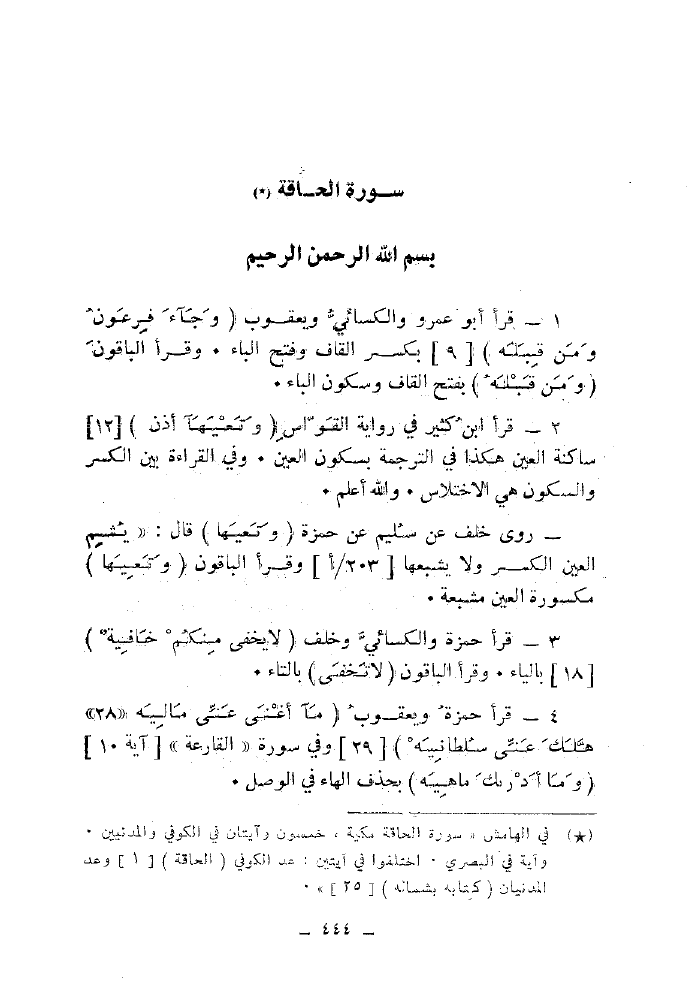 سورة الحاقة (*)
بسم الله الرحمن الرحيم
١ ـ قرأ أبو عمرو والكسائيُّ ويعقوب ( وَجَآءَ فِرعَونُ
وَمَن قِبَلَهُ ) [ ٩ ] بكسر القاف وفتح الباء ٠ وقرأ الباقونَ
( وَمَن قَبْلَهُ ) بفتح القاف وسكون الباء ٠
٢ ـ قرأ ابنُ كثير في رواية القوّاسِ ( وَتَعْيَهَآ أذن ) [١٢]
ساكنة العين هكذا في الترجمة بسكون العين ٠ وفي القراءة بين الكسر
والسكون هي الاختلاس ٠ والله أعلم ٠
ـ روى خلف عن سُليم عن حمزة ( وَتَعيَها ) قال : « يُشم
العين الكسر ولا يشبعها [ ٢٠٣/أ ] وقرأ الباقون ( وَتَعِيَهَا )
مكسورة العين مشبعة ٠
٣ ـ قرأ حمزة والكسائيُّ وخلف ( لايخفى مِنكُمْ خَافِيةٌ )
[ ١٨ ] بالياء ٠ وقرأ الباقون ( لاتَخفَى ) بالتاء ٠
٤ ـ قرأ حمزةُ ويعقوبُ ( مَآ أغْنَى عَنَّى مَاليَه «٢٨»
هَلَكَ عَنَّى سُلطانيَهْ ) [ ٢٩ ] وفي سورة « القارعة » [ آية ١٠ ]
( وَمَا أدْرىكَ ماهيَه ) بحذف الهاء في الوصل ٠
(★) في الهامش « سورة الحاقة مكية ، خمسون وآيتان في الكوفي والمدنيين ٠
وآية في البصري ٠ اختلفوا في آيتين : عد الكوفي ( الحاقة ) [ ١ ] وعد
المدنيان ( كتابه بشماله ) [ ٢٥ ] » ٠
ـ ٤٤٤ ـ